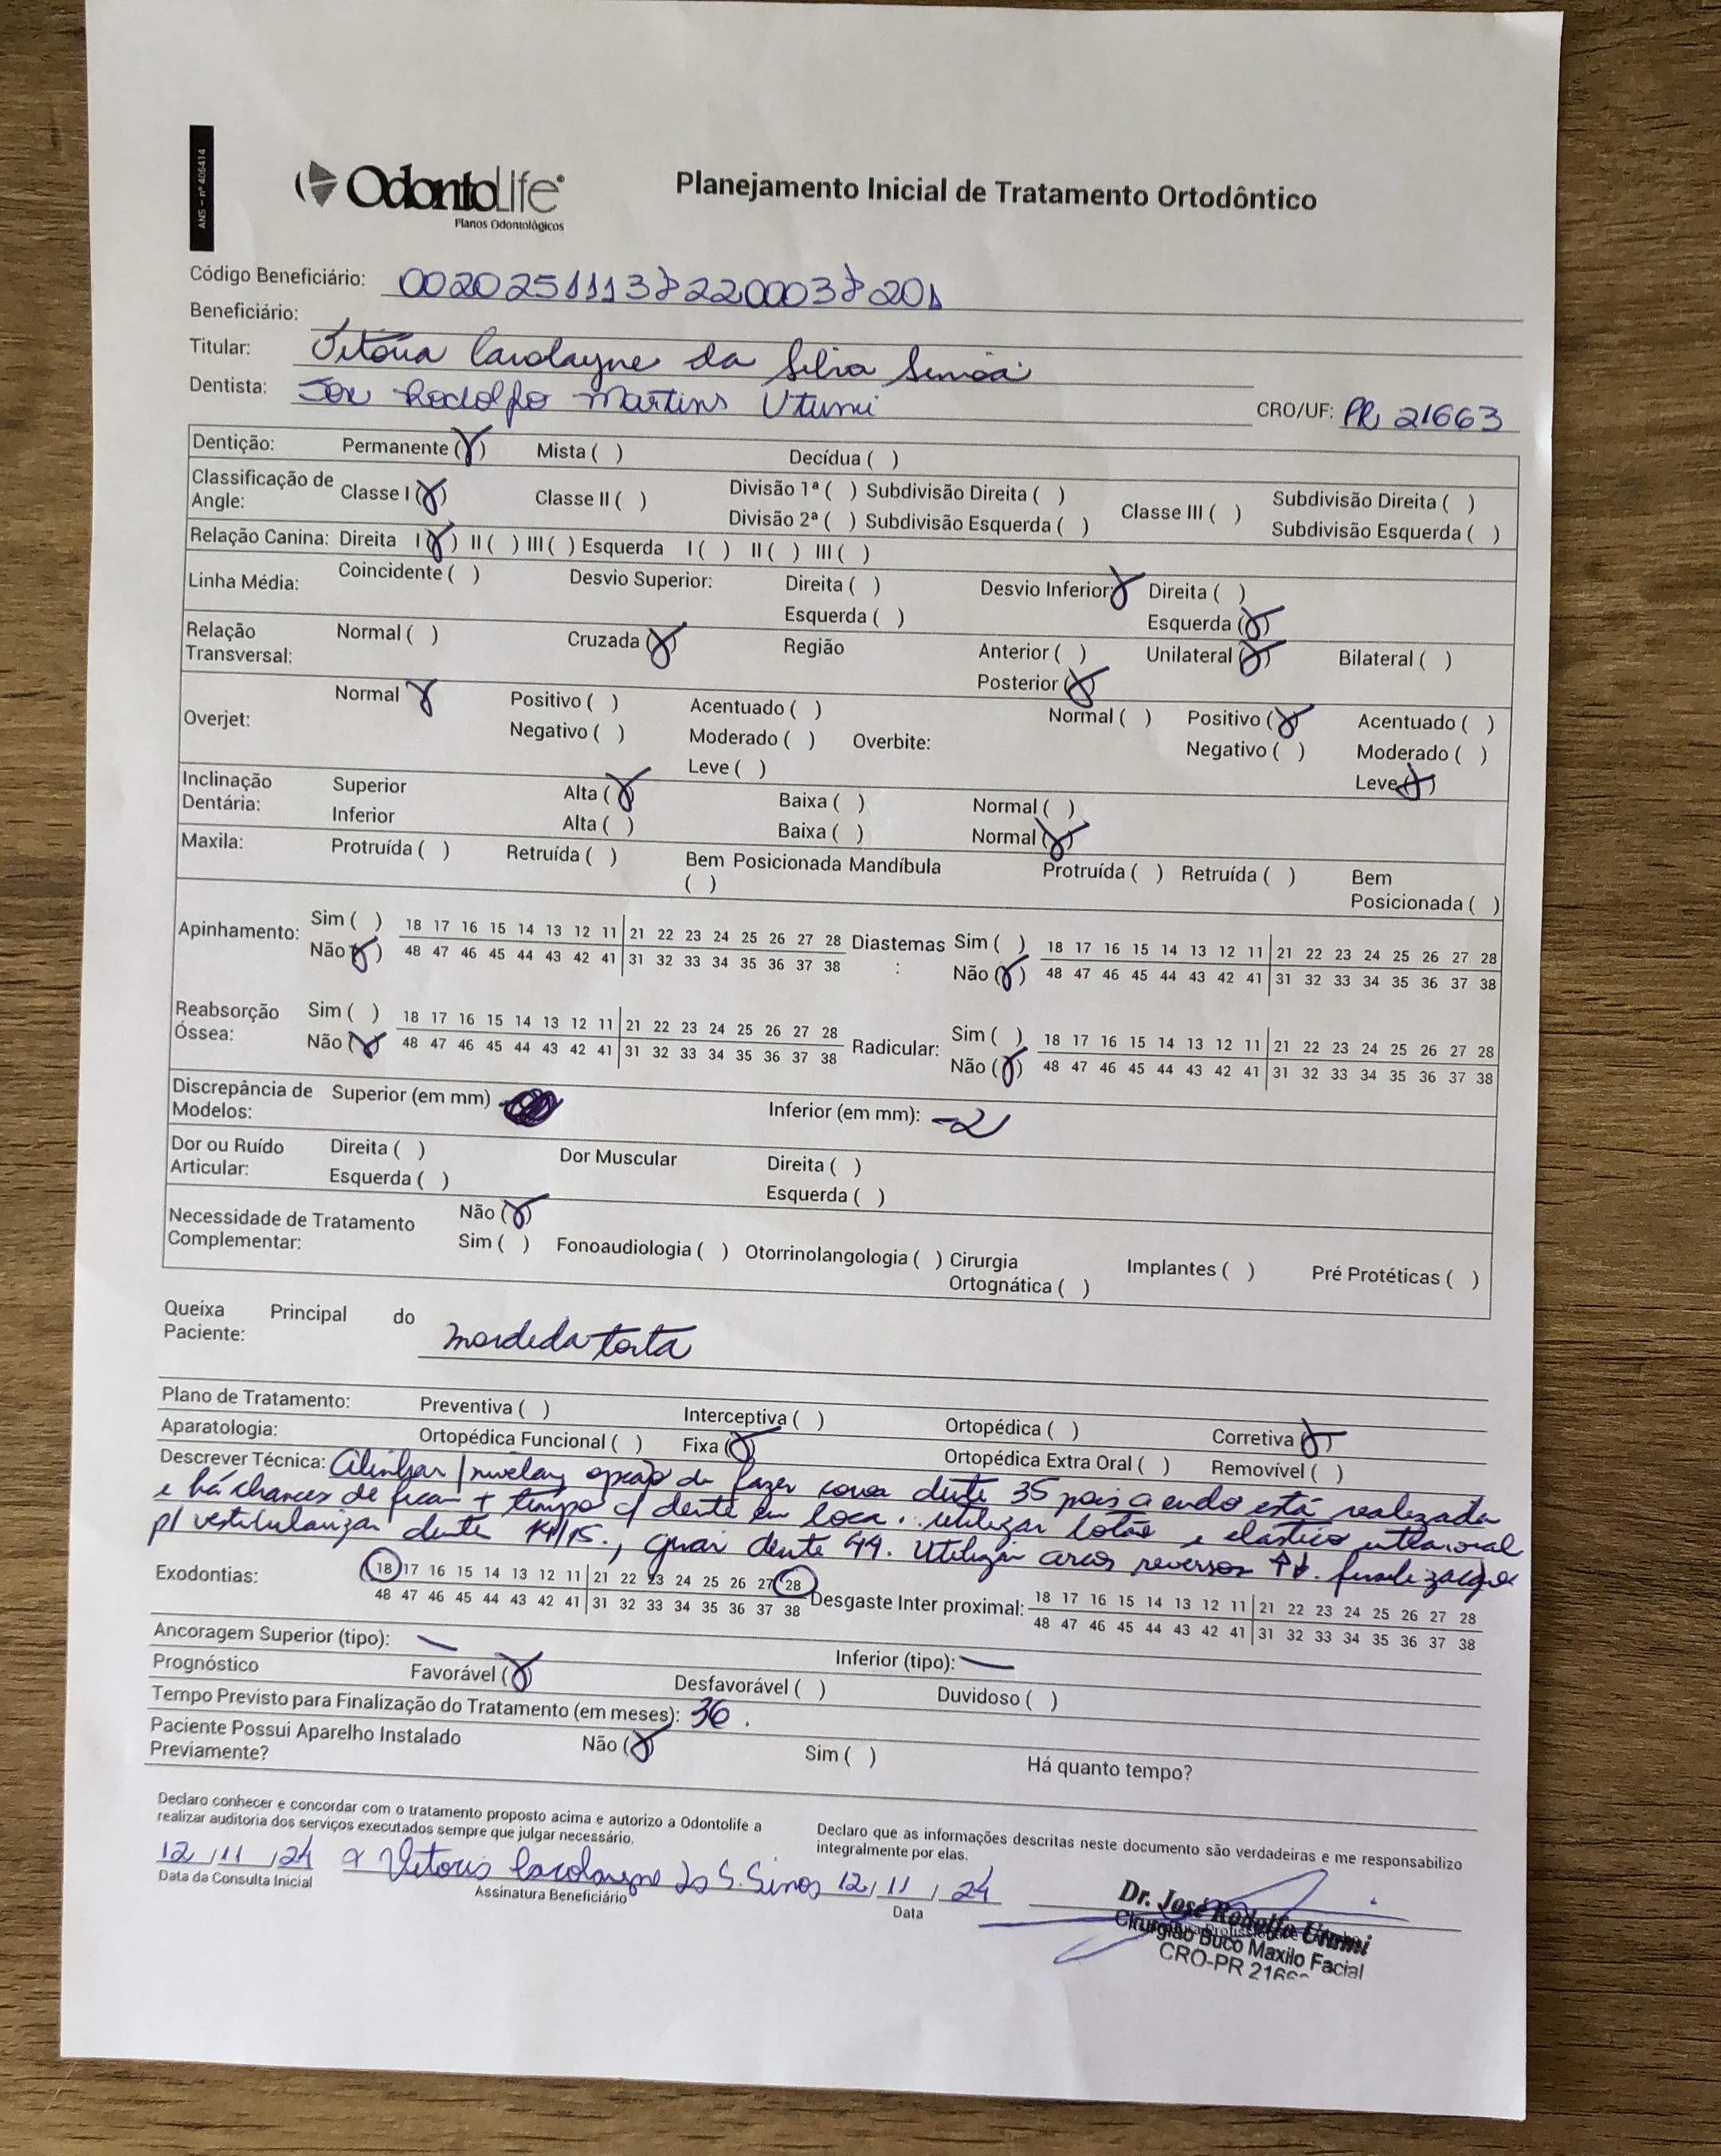 ANS - nº 406414
OdontoLife
Planos Odontológicos
Planejamento Inicial de Tratamento Ortodôntico
Código Beneficiário: 002025111372200037201
Beneficiário:
Titular: Vitória Carolayne da Silva
Dentista: José Rodolfo Martins Utumi CRO/UF: PR 21663
Dentição: Permanente (X) Mista ( ) Decídua ( )
Classificação de Angle: Classe I (X) Classe II ( ) Divisão 1ª ( ) Subdivisão Direita ( ) Divisão 2ª ( ) Subdivisão Esquerda ( ) Classe III ( ) Subdivisão Direita ( ) Subdivisão Esquerda ( )
Relação Canina: Direita I (X) II ( ) III ( ) Esquerda I ( ) II ( ) III ( )
Linha Média: Coincidente ( ) Desvio Superior: Direita ( ) Esquerda ( ) Desvio Inferior: X Direita ( ) Esquerda (X)
Relação Transversal: Normal ( ) Cruzada (X) Região Anterior ( ) Posterior (X) Unilateral (X) Bilateral ( )
Overjet: Normal X Positivo ( ) Negativo ( ) Acentuado ( ) Moderado ( ) Leve ( ) Overbite: Normal ( ) Positivo (X) Negativo ( ) Acentuado ( ) Moderado ( ) Leve (X)
Inclinação Dentária: Superior Alta (X) Baixa ( ) Normal ( )
Inferior Alta ( ) Baixa ( ) Normal (X)
Maxila: Protruída ( ) Retruída ( ) Bem Posicionada ( ) Mandíbula Protruída ( ) Retruída ( ) Bem Posicionada ( )
Apinhamento: Sim ( ) Não (X) 18 17 16 15 14 13 12 11 21 22 23 24 25 26 27 28
48 47 46 45 44 43 42 41 31 32 33 34 35 36 37 38
Diastemas : Sim ( ) Não (X) 18 17 16 15 14 13 12 11 21 22 23 24 25 26 27 28
48 47 46 45 44 43 42 41 31 32 33 34 35 36 37 38
Reabsorção Óssea: Sim ( ) Não (X) 18 17 16 15 14 13 12 11 21 22 23 24 25 26 27 28
48 47 46 45 44 43 42 41 31 32 33 34 35 36 37 38
Radicular: Sim ( ) Não (X) 18 17 16 15 14 13 12 11 21 22 23 24 25 26 27 28
48 47 46 45 44 43 42 41 31 32 33 34 35 36 37 38
Discrepância de Modelos: Superior (em mm) Inferior (em mm): -2
Dor ou Ruído Articular: Direita ( ) Esquerda ( ) Dor Muscular Direita ( ) Esquerda ( )
Necessidade de Tratamento Complementar: Não (X)
Sim ( ) Fonoaudiologia ( ) Otorrinolangologia ( ) Cirurgia Ortognática ( ) Implantes ( ) Pré Protéticas ( )
Queixa Principal do Paciente: mordida torta
Plano de Tratamento: Preventiva ( ) Interceptiva ( ) Ortopédica ( ) Corretiva (X)
Aparatologia: Ortopédica Funcional ( ) Fixa (X) Ortopédica Extra Oral ( ) Removível ( )
Descrever Técnica: Alinhar / nivelar, opção de fazer coroa dente 35 pois a endo está realizada
e há chances de ficar + tempo c/ dente em boca. utilizar botão e elástico intraoral
p/ vestibularizar dente 14/15., girar dente 44. Utilizar arcos reversos ↑↓. finalização
Exodontias: 18 17 16 15 14 13 12 11 21 22 23 24 25 26 27 28
48 47 46 45 44 43 42 41 31 32 33 34 35 36 37 38
Desgaste Inter proximal: 18 17 16 15 14 13 12 11 21 22 23 24 25 26 27 28
48 47 46 45 44 43 42 41 31 32 33 34 35 36 37 38
Ancoragem Superior (tipo): — Inferior (tipo): —
Prognóstico Favorável (X) Desfavorável ( ) Duvidoso ( )
Tempo Previsto para Finalização do Tratamento (em meses): 36 .
Paciente Possui Aparelho Instalado Previamente? Não (X) Sim ( ) Há quanto tempo?
Declaro conhecer e concordar com o tratamento proposto acima e autorizo a Odontolife a
realizar auditoria dos serviços executados sempre que julgar necessário.
Declaro que as informações descritas neste documento são verdadeiras e me responsabilizo
integralmente por elas.
12/11/24 x Vitoria Carolayne da S. 12/11/24
Data da Consulta Inicial Assinatura Beneficiário Data
Dr. José Rodolfo Utumi
Cirurgião Buco Maxilo Facial
CRO-PR